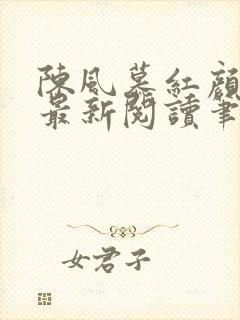 陳風慕紅顏
最新閱讀筆
女君子